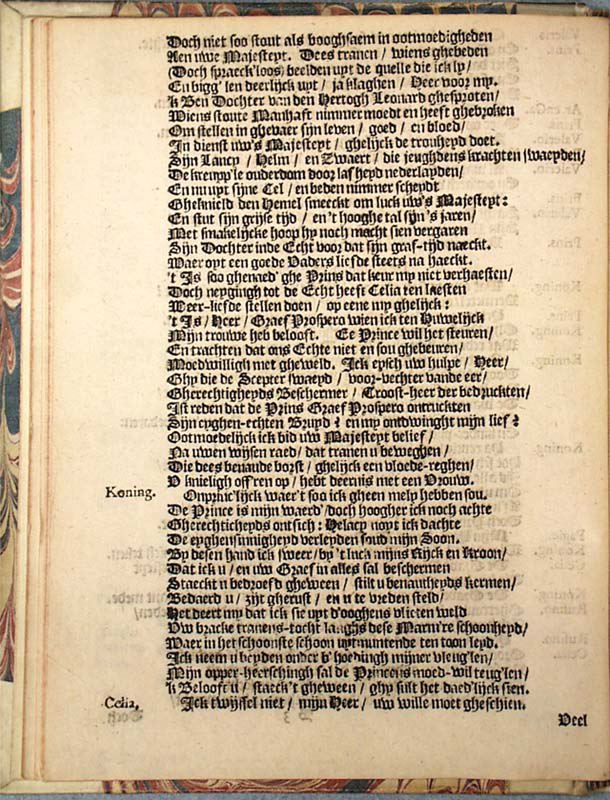 Doch niet soo stout als booghsaem in ootmoedigheden
Aen uwe Majesteyt. Dees tranen / wiens ghebeden
(Doch spraeck'loos) beelden uyt de quelle die ick ly /
En bigg'len deerlijck uyt / ja klaghen / Heer voor my.
'k Ben Dochter van den Hertogh Leonard ghesproten /
Wiens stoute Manhaft nimmer moedt en heeft ghebroken
Om stellen in ghevaer sijn leven / goed / en bloed /
In dienst uw's Majesteyt / ghelijck de trouheyd doet.
Sijn Lancy / Helm / en Zwaert / die jeughdens krachten swaeyden /
De kreupp'le ouderdom door las heyd nederlayden /
En nu uyt sijne Cel / en beden nimmer scheydt
Gheknield den Hemel smeeckt om luck uw's Majesteyt:
En stut sijn grijse tijd / en 't hooghe tal sijn's jaren /
Met smakelijcke hoop hy noch macht sien vergaren
Sijn Dochter inde Echt voor dat sijn graf-tijd naeckt.
Waer oyt een goede Vaders liefde steets na haeckt.
't Is soo ghenaed' ghe Prins dat keur my niet verhaesten /
Doch neygingh tot de Echt heeft Celia ten laesten
Weer-liefde stellen doen / op eene my ghelijck:
't Is / Heer / Graef Prospero wien ick ten Huwelijck
Mijn trouwe heb beloost. Ee Prince wil het steuren /
En trachten dat ons Echte niet en sou ghebeuren /
Moedwilligh met gheweld. Ick eysch uw hulpe / Heer /
Ghy die de Scepter swaeyd / voor-vechter vande eer /
Gherechtigheyds Beschermer / Troost-heer der bedruckten /
Ist reden dat de Prins Graef Prospero ontruckten
Sijn eyghen-echten Bruyd? en my ontdwinght mijn lief?
Ootmoedelijck ick bid uw Majesteyt belief /
Na uwen wijsen raed / dat tranen u beweghen /
Die dees benaude borst / ghelijck een vloede-reghen /
U knieligh off'ren op / hebt deernis met een Vrouw.
Koning. Onprinc'lijck waer't soo ick gheen melp hebben sou.
De Prince is mijn waerd' / doch hoogher ick noch achte
Gherechticheyds ontsich: Helacy noyt ick dachte
De eyghensinnigheyd verleyden soud mijn Soon.
By desen hand ick sweer / by 't luck mijns Rijck en Kroon /
Dat ick u / en uw Graef in alles sal beschermen
Staeckt u bedroefd gheween / stilt u benautheyds kermen /
Bedaerd u / zijt gherust / en u te vreden steld /
Het deert my dat ick sie uyt d'ooghens vlieten weld
Uw bracke tranens-tocht langhs dese Marm're schoonheyd /
Waer in het schoonste schoon uytmuntende ten toon leyd.
Ick neem u beyden onder d' hoedingh mijner vleug'len /
Mijn opper-heerschingh sal de Princens moed-wil teug'len /
'k Belooft u / staeck't gheween / ghy sult het daed'lijck sien.
Celia, Ick twyffel niet / mijn Heer / uw wille moet gheschien.
Veel